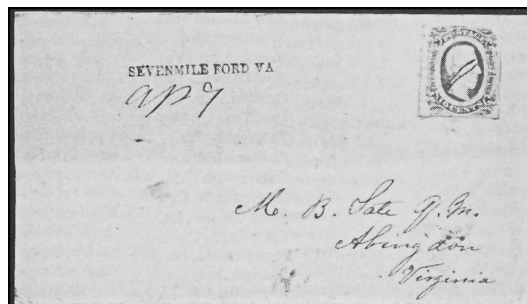 SEVENMILE FORD VA
Ap 9
M. B. Tate P. M.
Abingdon
Virginia